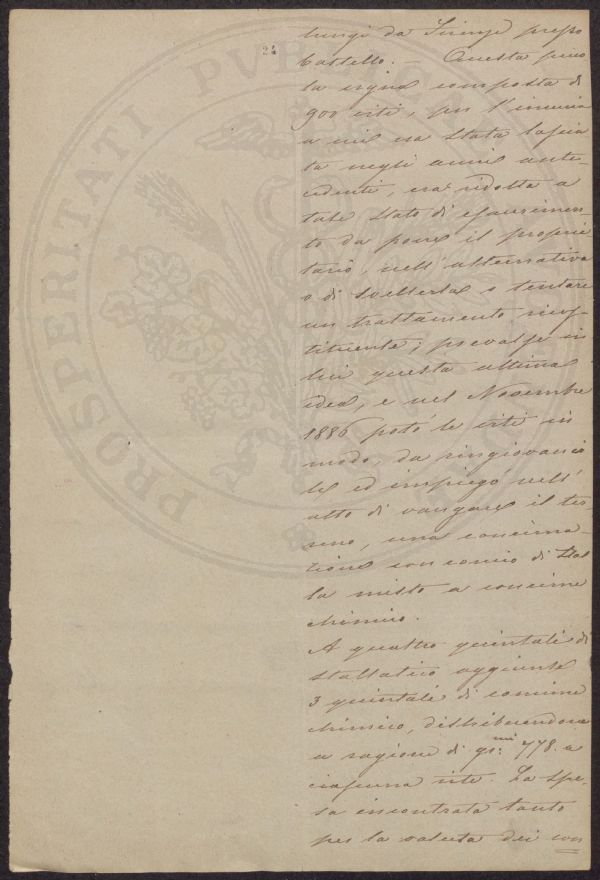 24
lungi da Firenze presso
Castello. — Questa picco
la vigna composta di
900 viti, per l'incuria
a cui era stata lascia
ta negli anni ante-
cedenti, era ridotta a
tale stato di esaurimen-
to da porre il proprie
tario, nell'alternativa
o di svellerla o tentare
un trattamento ricos-
tituente; prevalse in
lui questa ultima
idea, e nel Novembre
1886 potò le viti in
modo, da ringiovanir
le ed impiegò nell'
atto di vangare il ter-
reno, una concima-
zione con concio di stal
la misto a concime
chimico.
A quattro quintali di
stallatico aggiunse
3 quintali di concime
chimico, distribuendone
a ragione di gr:mi 778. a
ciascuna vite. La spe-
sa incontrata tanto
per la valuta dei con
PROSPERITATI PVBLICAE